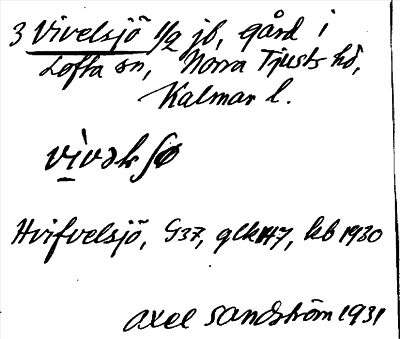 3 Vivelsjö 1/2 jb, gård i
Lofta sn, Norra Tjusts hd,
Kalmar l.
Hvifvelsjö, G37, glk 147, kb 1930
Axel Sandström 1931